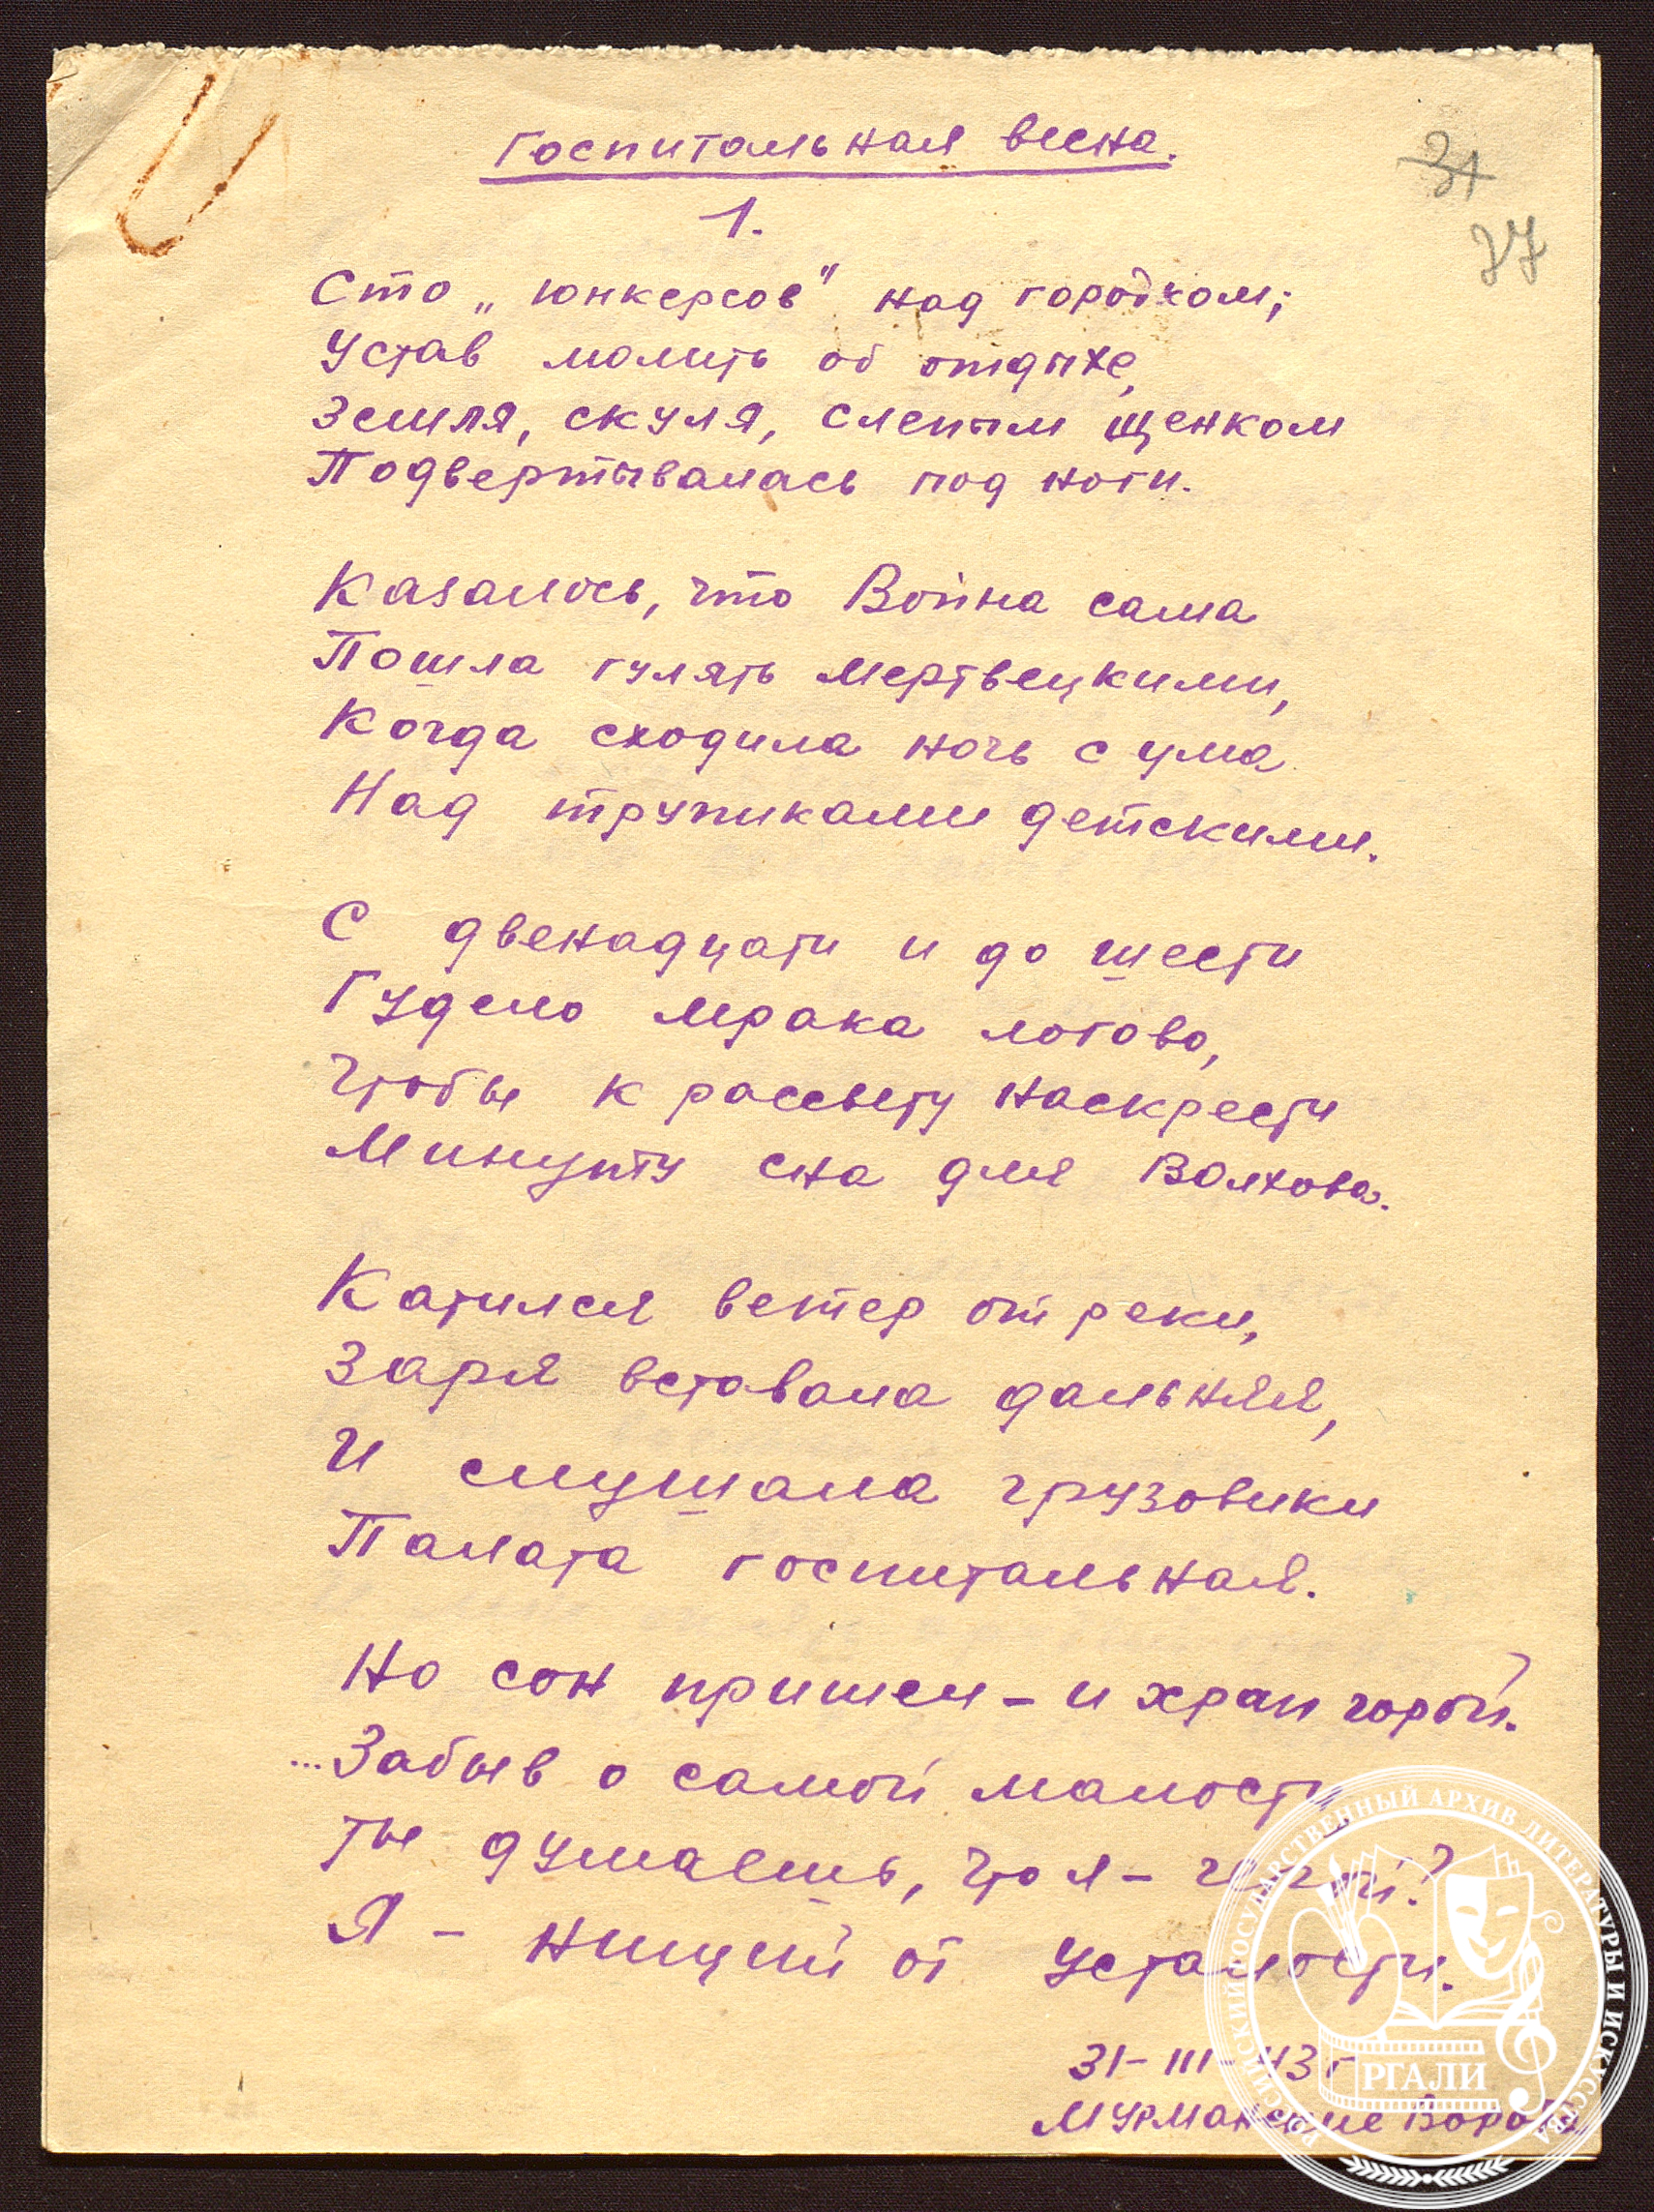 Госпитальная весна.
31
37
1.
Сто „юнкерсов" над городком;
Устав молить об отдыхе,
Земля, скуля, слепым щенком
Подвертывалась под ноги.
Казалось, что Война сама
Пошла гулять мертвецкими,
Когда сходила ночь с ума
Над трупиками детскими.
С двенадцати и до шести
Гудело мрака логово,
Чтобы к рассвету наскрести
Минутку сна для Волхова.
Катился ветер от реки,
Заря вставала дальняя,
И слушала грузовики
Палата госпитальная.
Но сон пришел – и храп горой.
...Забыв о самой малости
Ты думаешь, что я – герой?
Я – нищий от усталости.
31-III-43 г
Мурманские Ворота
РОССИЙСКИЙ ГОСУДАРСТВЕННЫЙ АРХИВ ЛИТЕРАТУРЫ И ИСКУССТВА
РГАЛИ